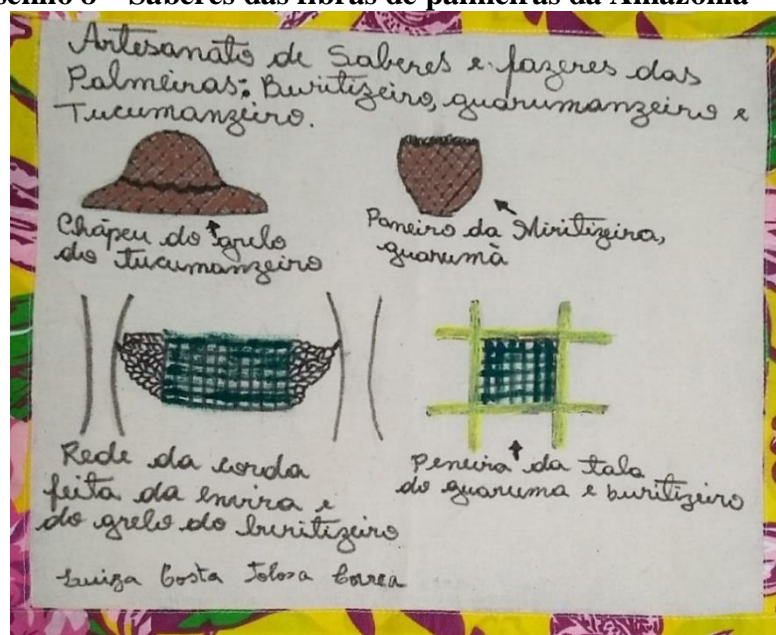 Saberes das fibras de palmeiras da Amazônia
Artesanato de Saberes e fazeres das
Palmeiras: Buritizeiro, guarumanzeiro e
Tucumanzeiro.
Chápeu do grelo
do tucumanzeiro
Paneiro da Miritizeira,
guarumà
Rede da corda
feita da envira e
do grelo do buritizeiro
Peneira da tala
do guaruma e buritizeiro
Luiza Costa Tolosa Correa